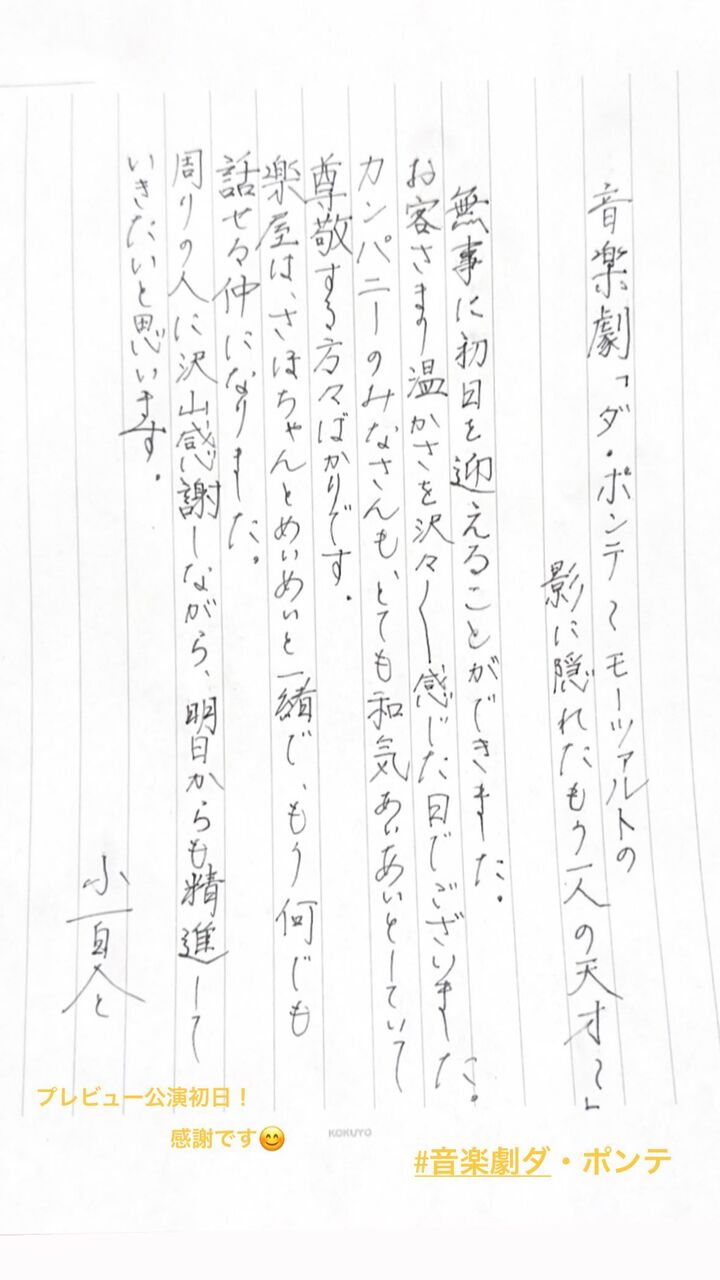 音楽劇「ダ・ポンテ〜モーツァルトの
影に隠れたもう一人の天才〜」
無事に初日を迎えることができました。
お客さまの温かさを沢々感じた日でございました。
カンパニーのみなさんも、とても和気あいあいとしていて
尊敬する方々ばかりです。
楽屋は、さほちゃんとめいめいと一緒で、もう何でも
話せる仲になりました。
周りの人に沢山感謝しながら、明日からも精進して
いきたいと思います。
プレビュー公演初日！
感謝です😊
KOKUYO
#音楽劇ダ・ポンテ